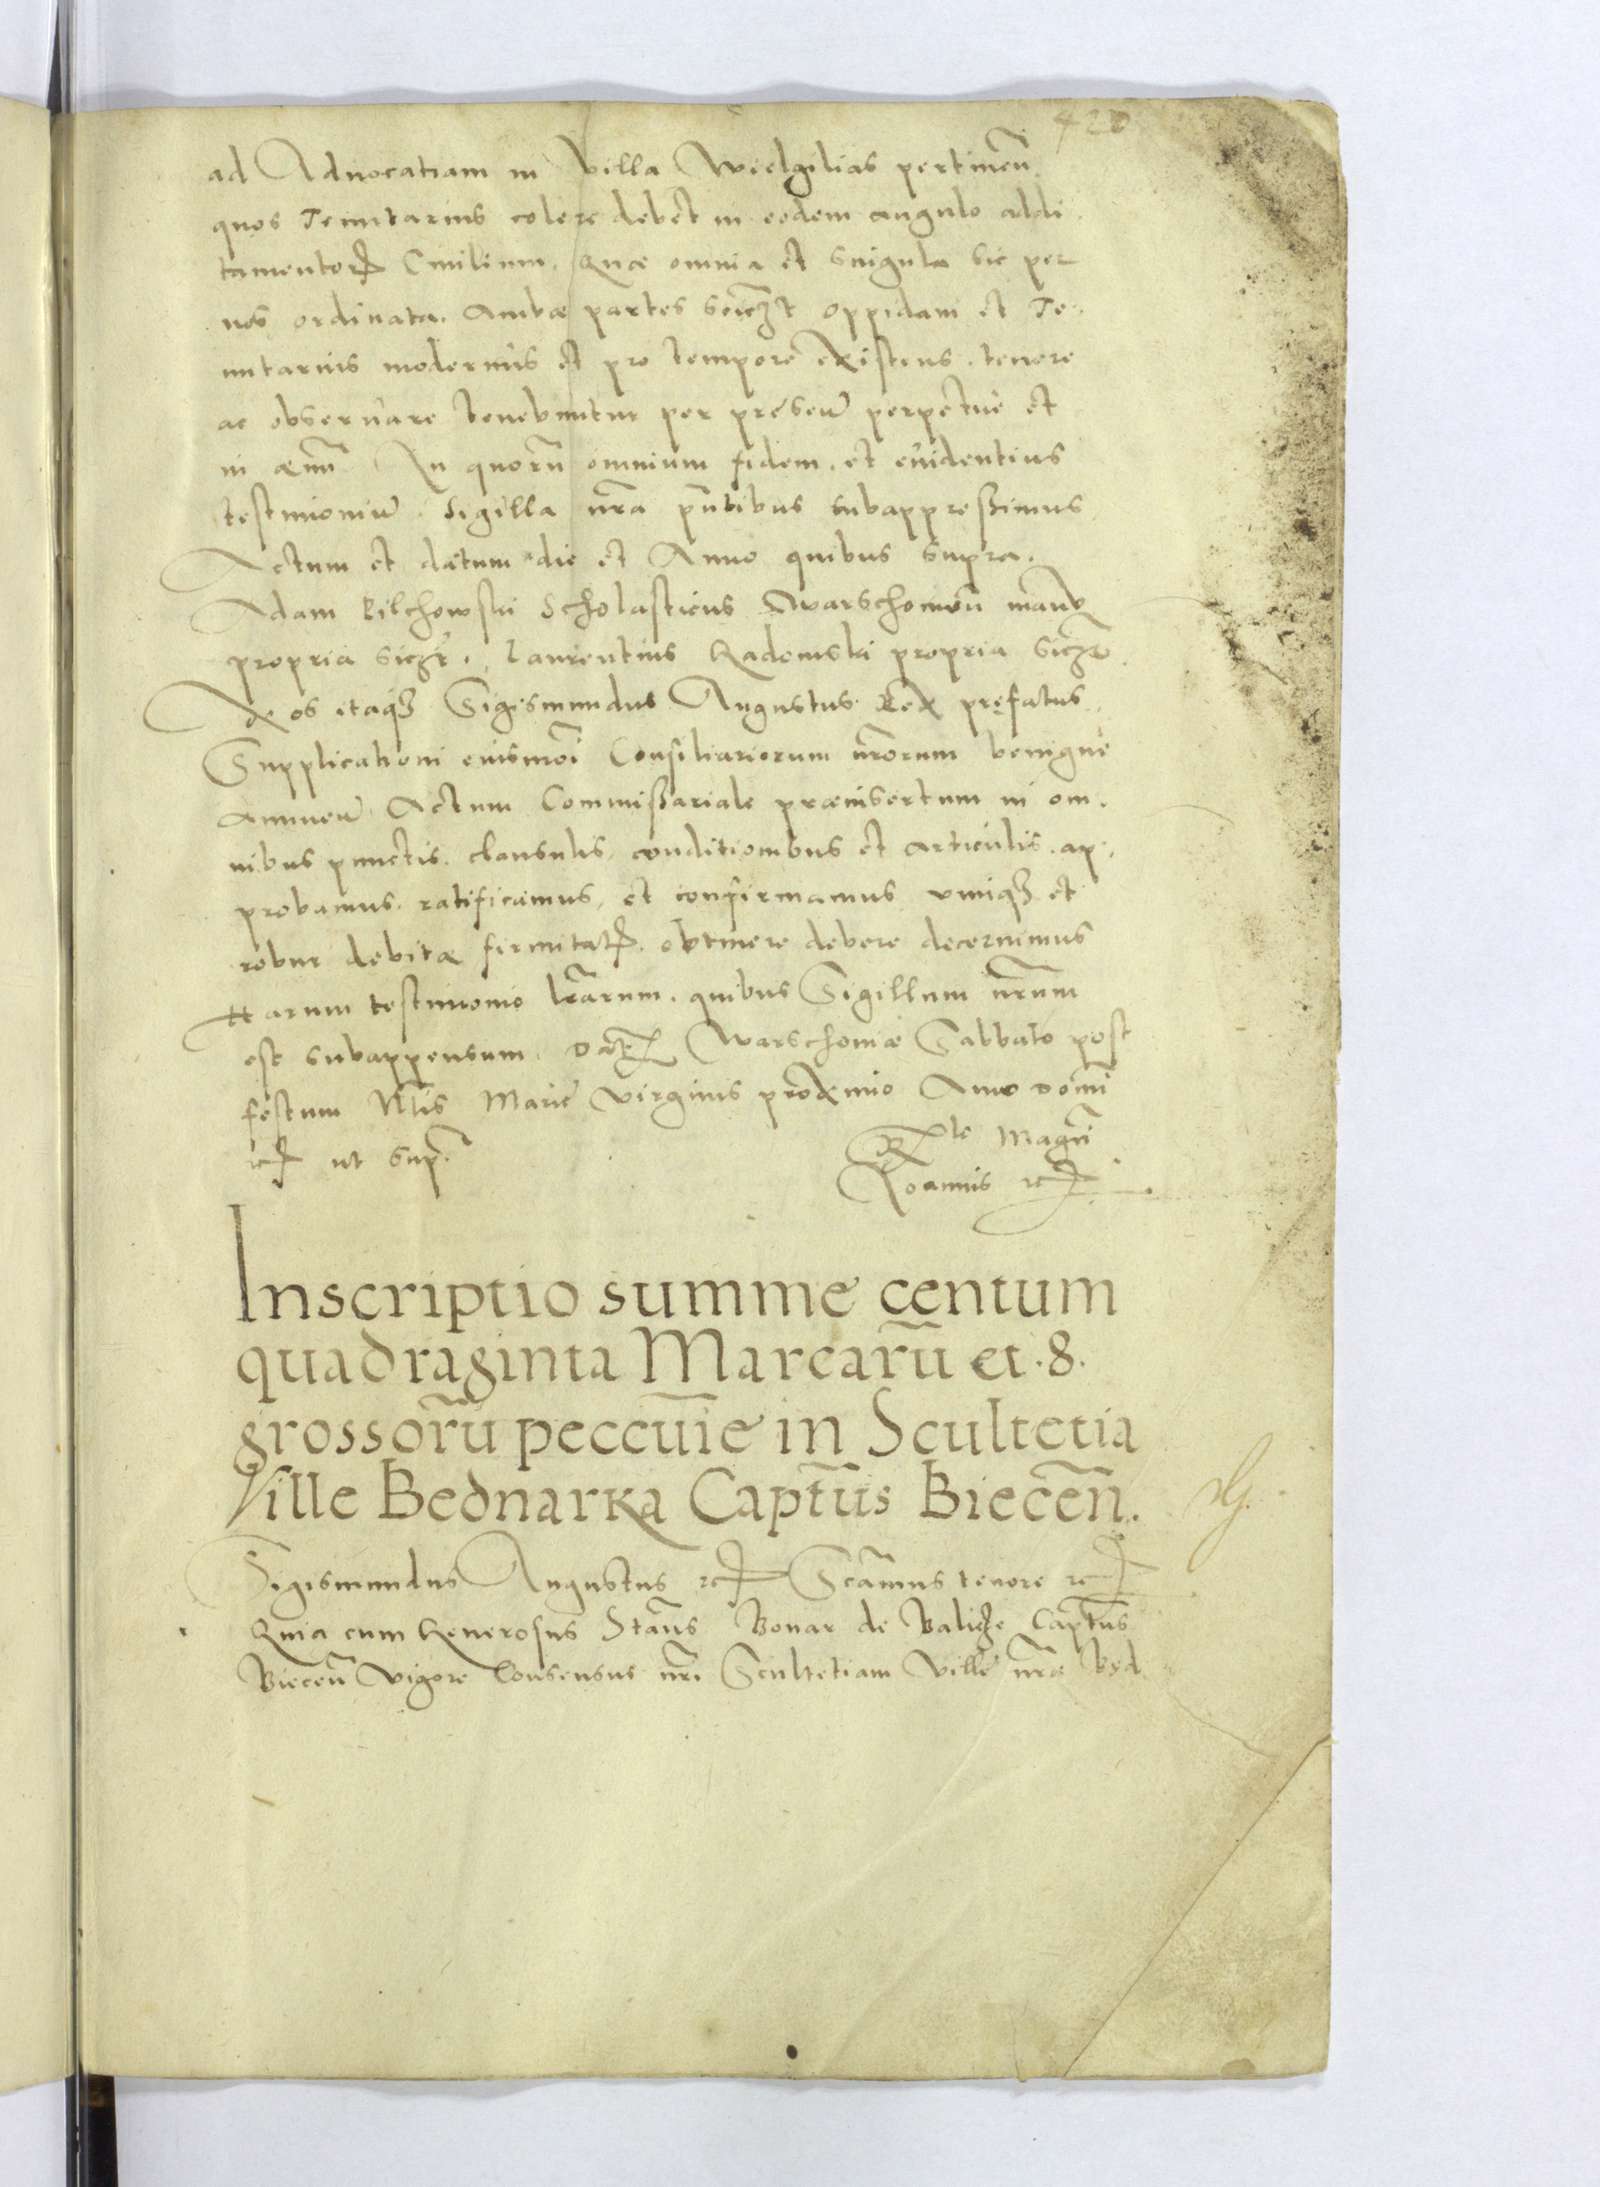 420
ad Aduocatiam in Villa Wielgilias pertineñ
quos Tenutarius colere debet in eodem angulo addi
tamentoꝝ Ciuilium. Quæ omnia et singula sic per
nos ordinata. Ambæ partes scilicꝫt oppidani et Te-
nutarius modernus et pro tempore existens. tenere
ac obseruare tenebuntur per præseñ perpetue et
in æuũ. In quorũ omnium fidem. et euidentius
testimoniũ. Sigilla nrã pñtibus subappressimus
Actum et datum die et Anno quibus supra.
Adam Pilchowski Scholasticus Warschouieñ manu
propria sscꝛ. Laurentius Radomski propria
Nos itaqꝫ Sigismundus Augustus Rex pręfatus
Supplicationi eiusmõi Consiliariorum nrõrum benignè
annueñ Actum Commissariale præinsertum in om-
nibus punctis. clausulis, conditionibus et articulis. ap-
probamus. ratificamus, et confirmamus vimqꝫ et
robur debitæ firmitatꝭ. obtinere debere decernimus
Harum testimonio lrãrum. quibus Sigillum nrũm
est subappensum. Datꝭ Warschouiæ Sabbato post
festum Nt̃is Marie Virginis proximo Anno Domĩ
ꝛcꝭ ut supꝭ.
Rle Magcĩ
Ioannis ꝛcꝭ
Inscriptio summe centum
quadraginta Marcarũ et .8.
grossorũ peccunie in Scultetia
Ville Bednarka Captũs Biecẽn.
Sigismundus Augustus ꝛcꝭ Scãmus tenore ꝛcꝭ
Quia cum Generosus Stãus Bonar de Balicze Captũs
Bieceñ vigore Consensus nrĩ Scultetiam Ville nrẽ Bed